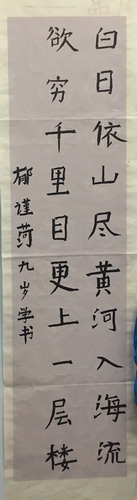 白日依山尽黄河入海流
欲穷千里目更上一层楼
郁谨菏九岁学书